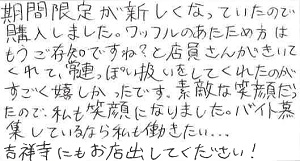 期間限定が新しくなっていたので
購入しました。ワッフルのあたため方は
もうご存知ですね?と店員さんがきいて
くれて、常連っぽい扱いをしてくれたのが
すごく嬉しかったです。素敵な笑顔だっ
たので、私も笑顔になりました。バイト募
集しているなら私も働きたい...
吉祥寺にもお店出してください!